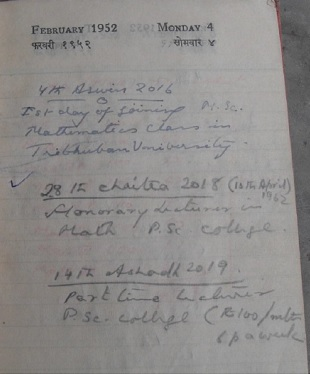 FEBRUARY 1952 MONDAY 4
फरवरी १९५२ सोमवार ४
4th Aswin 2016
Ist day of joining M.Sc.
Mathematics class in
Tribhuban University.
28 th Chaitra 2018 (10th April) 1962
Honorary lecturer in
Math P.Sc college.
14th Ashadh 2019.
Part time lecturer
P.Sc. college (Rs 100/mth
6 p a week